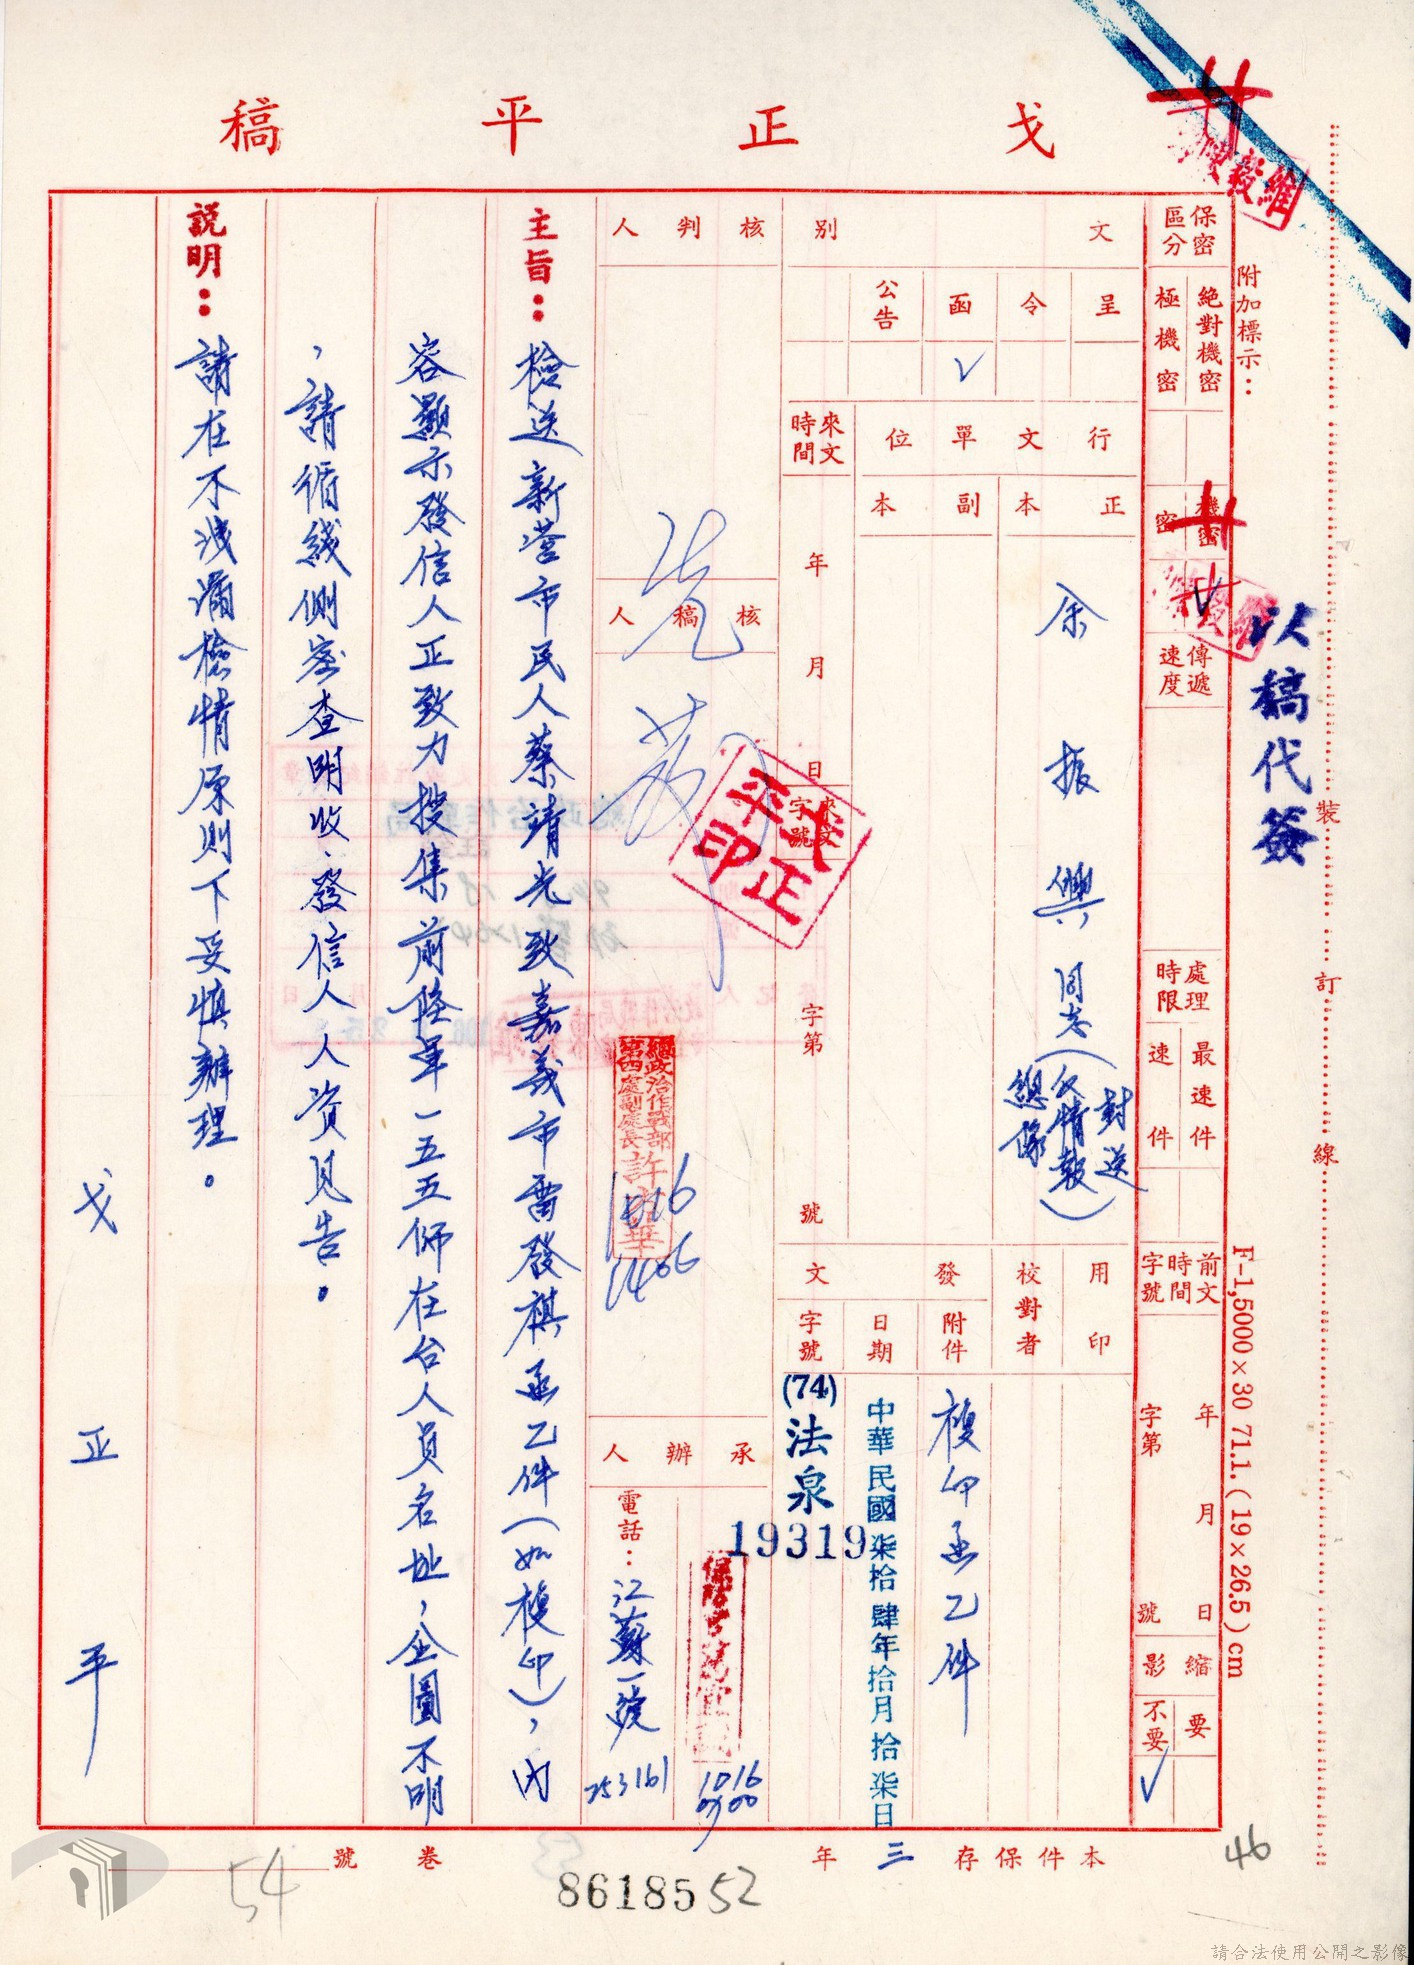 戈正平稿
以稿代簽
附加標示：
保密區分
絕對機密
極機密
機密
密
✓
傳遞速度
處理時限
最速件
速件
前文時間字號
年 月 日
字第 號
縮影
要
不要
✓
文別
呈
令
函
✓
公告
行文單位
正本
副本
余振興同志（封送
仅情報）
總 像
來文時間
年 月 日
來文字號
字第 號
用印
校對者
發文
附件
日期
字號
複印函乙件
中華民國柒拾肆年拾月拾柒日
(74)法泉
19319
核判人
核稿人
承辦人
戈正平印
總政治作戰部
第四處副處長許
1400
電話：江蘇一號
253161
1016
0900
主旨：檢送新營市民人蔡靖光致嘉義市雷發祺函乙件（如複印），內
容顯示發信人正致力搜集前陸軍一五五師在台人員名址，企圖不明
，請循綫側密查明收、發信人人資見告。
說明：請在不洩漏檢情原則下妥慎辦理。
戈正平
裝 訂 線
F-1,5000×30 71.1.(19×26.5)cm
本件保存三年
卷 號
54
8618552
46
請合法使用公開之影像